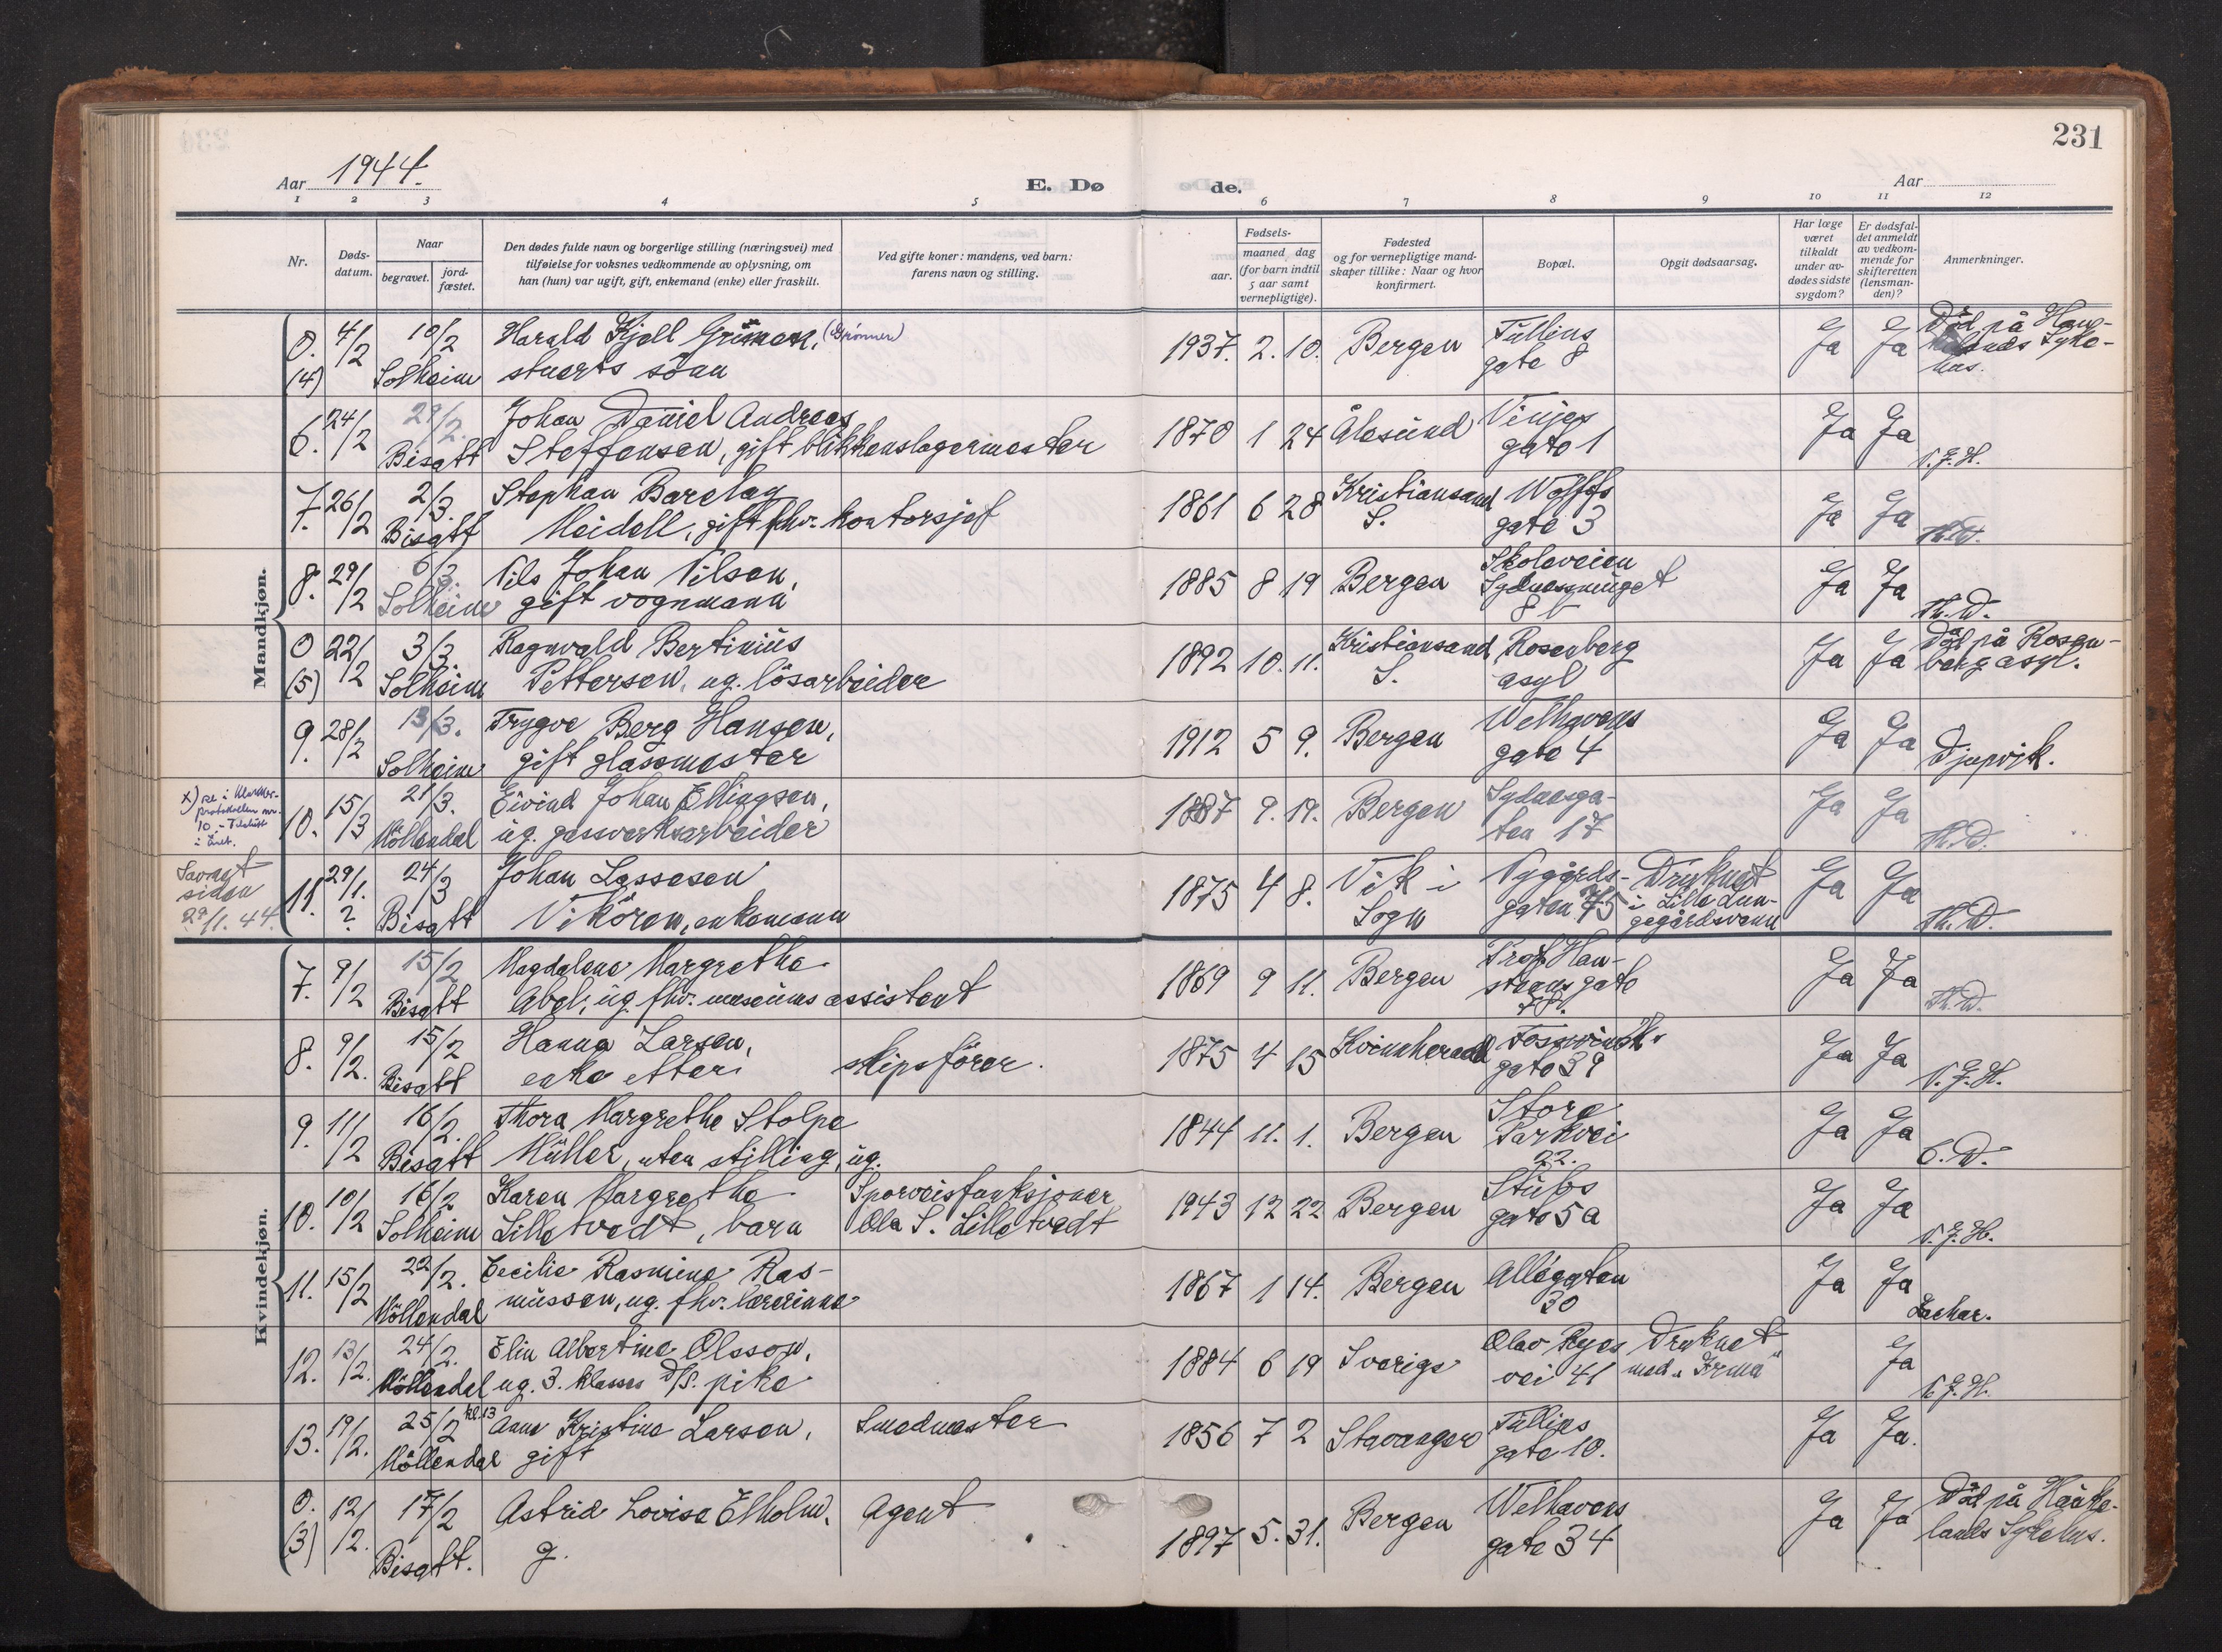 231
Aar 1944.
E. Dø
de.
Aar
1 2 3 4 5 6 7 8 9 10 11 12
Nr.
Døds-
datum.
Naar
begravet.
jord-
fæstet.
Den dødes fulde navn og borgerlige stilling (næringsvei) med
tilføielse for voksnes vedkommende av oplysning, om
han (hun) var ugift, gift, enkemand (enke) eller fraskilt.
Ved gifte koner: mandens, ved barn:
farens navn og stilling.
Fødsels-
aar.
maaned dag
(for barn indtil
5 aar samt
vernepligtige).
Fødested
og for vernepligtige mand-
skaper tillike: Naar og hvor
konfirmert.
Bopæl.
Opgit dødsaarsag.
Har læge
været
tilkaldt
under av-
dødes sidste
sygdom?
Er dødsfal-
det anmeldt
av vedkom-
mende for
skifteretten
(lensman-
den)?
Anmerkninger.
Mandkjøn.
0. 4/2 10/2 Harald Kjell (Grønner) 1937. 2. 10. Bergen Tullins Ja Ja Död på Hau-
(4) Solheim stuerts sönn gate 8 Syke-
hus.
6. 24/2 29/2. Johan Daniel Andreas 1870 1 24 Ålesund Vinjes Ja Ja
Bisatt Steffensen, gift blikkenslagermester gate 1
7. 26/2 2/3. Stephan Barclay 1861 6 28 Kristiansand Wolffs Ja Ja
Bisatt Meidell, gift fhv. kontorsjef S. gate 3
8. 29/2 6/3. Nils Johan Nilsen, 1885 8 19 Bergen Skoleveien Ja Ja Th. D.
Solheim gift vognmann 8 b
0 22/2 3/3 Ragnvald Bertinius 1892 10. 11. Kristiansand Rosenberg Ja Ja Död på Rosen-
(5) Solheim Pettersen, ug. lösarbeider S. asyl berg asyl.
9. 28/2 13/3. Trygve Berg Hansen, 1912 5 9. Bergen Welhavens Ja Ja Djupvik.
Solheim gift glassmester gate 4
x) se i klokker-
protokollen nr.
10. -
10. 15/3 21/3. Eivind Johan Ellingsen, 1887 9. 19. Bergen Sydnesga- Ja Ja Th. D.
Möllendal ug. gassverksarbeider ten 17
Savnet
siden
29/1. 44.
11. 29/1. ? 24/3 Johan Lassesen 1875 4 8. Vik i Nygårds- Druknet Ja Ja Th. D.
Bisatt Vikören, enkemann Sogn gaten 75 i Lille Lun-
gegårdsvann
Kvindekjøn.
7. 9/2 15/2 Magdalene Margrethe 1869 9 11. Bergen Prof. Han- Ja Ja Th. D.
Bisatt Abel, ug. fhv. museumsassistent steens gate
8. 9/2. 15/2 Hanna Larsen, 1875 4 15 Kvinnherad Fosswinck. Ja Ja N. J. H.
Bisatt enke etter skipsförer. gate 39
9. 11/2 16/2. Thora Margrethe Stolpe 1844 11. 1. Bergen Store Ja Ja
Bisatt Müller, uten stilling, ug. Parkvei
22.
10. 10/2 16/2 Karen Margrethe Sporveisfunksjonær 1943 12 22 Bergen Stubs Ja Ja N. J. H.
Solheim Lilletvedt, barn Ola S. Lilletvedt gate 5 a
11. 15/2 22/2. Cecilie Rasmine Ras- 1867 1 14. Bergen Allégaten Ja Ja
Möllendal mussen, ug. fhv. lærerinne 30
12. 13/2. 24/2. Elin Albertine Olsson, 1884 6 19 Sverige Olav Ryes Druknet Ja N. J. H.
Möllendal ug. 3. klasses D/S. pike vei 41 med „Irma"
13. 19/2. 25/2 kl. 13 Anne Kristine Larsen, Smedmester 1856 7 2 Stavanger Tullins Ja Ja.
Möllendal gift gate 10.
0. 12/2. 17/2 Astrid Lovise Elholm, Agent 1897 5. 31. Bergen Welhavens Ja Ja Död på Hauke-
(3) Bisatt. g. gate 34 lands Sykehus.